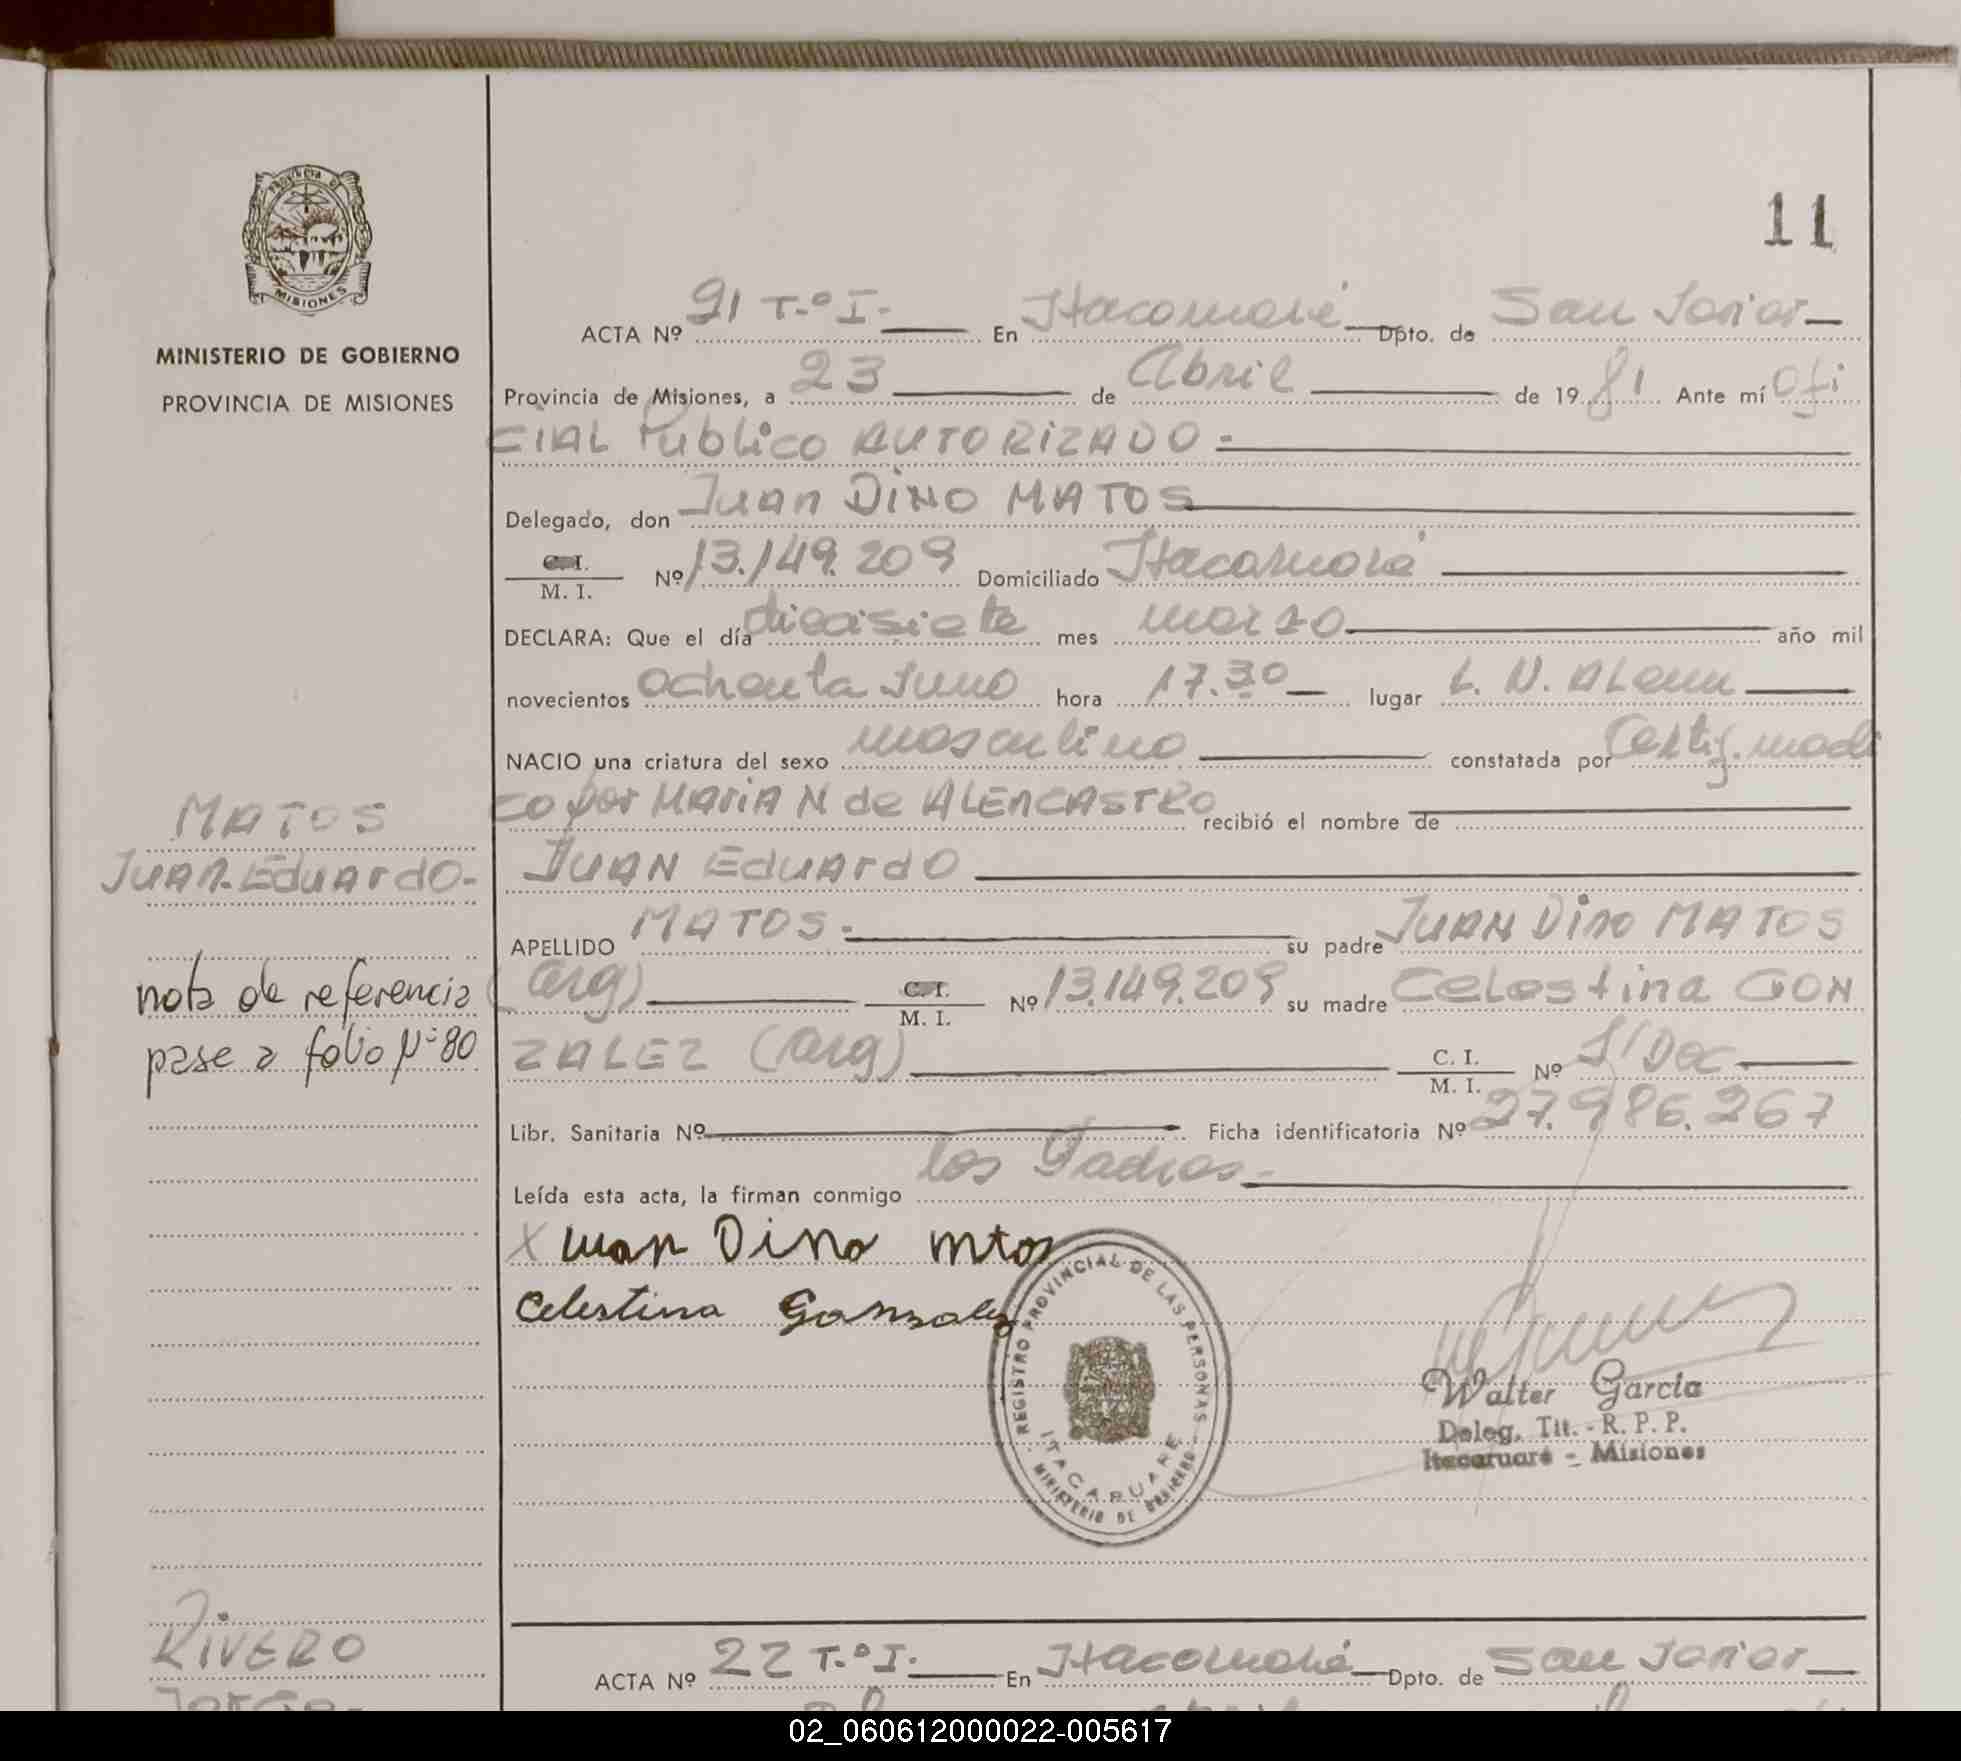 PROVINCIA DE
MISIONES
MINISTERIO DE GOBIERNO
PROVINCIA DE MISIONES
11
ACTA Nº 21 T.º I.- En Itacaruaré Dpto. de San Javier
Provincia de Misiones, a 23 de Abril de 1981 Ante mí Ofi
CIAL Público AUTORIZADO -
Delegado, don Juan DINO MATOS
C. I. / M. I. Nº 13.149.209 Domiciliado Itacaruaré
DECLARA: Que el día diecisiete mes marzo año mil
novecientos ochenta y uno hora 17.30 lugar L. N. ALem
NACIO una criatura del sexo masculino constatada por Certif. medi
co por MARIA N de ALENCASTRO recibió el nombre de
JUAN EduardO
APELLIDO MATOS.- su padre JUAN DINO MATOS
(arg) C. I. / M. I. Nº 13.149.209 su madre Celestina GON
ZALEZ (arg) C. I. / M. I. Nº S/Doc
Libr. Sanitaria Nº Ficha identificatoria Nº 27.986.267
Leída esta acta, la firman conmigo los Padres-
MATOS
JUAN-EduardO-
nota de referencia
pase a folio Nº 80
X Iuan Dino mtos
Celestina Gonzalez
REGISTRO PROVINCIAL DE LAS PERSONAS
ITACARUARE
MINISTERIO DE GOBIERNO
Walter García
Deleg. Tit. - R. P. P.
Itacaruaré - Misiones
RIVERO
Jorge-
ACTA Nº 22 T.º I.- En Itacaruaré Dpto. de San Javier
02_060612000022-005617